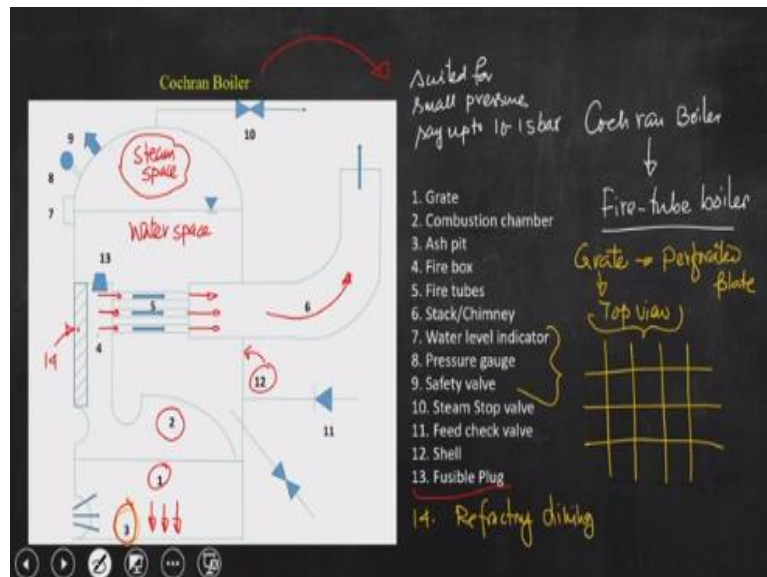 Cochran Boiler
suited for
small pressure
say upto 10-15 bar
Cochran Boiler
Fire-tube boiler
Grate → Perforated
plate
Top view
9
8
7
10
Steam
space
Water space
13
5
6
4
14
12
2
11
1
3
1. Grate
2. Combustion chamber
3. Ash pit
4. Fire box
5. Fire tubes
6. Stack/Chimney
7. Water level indicator
8. Pressure gauge
9. Safety valve
10. Steam Stop valve
11. Feed check valve
12. Shell
13. Fusible Plug
14. Refractory